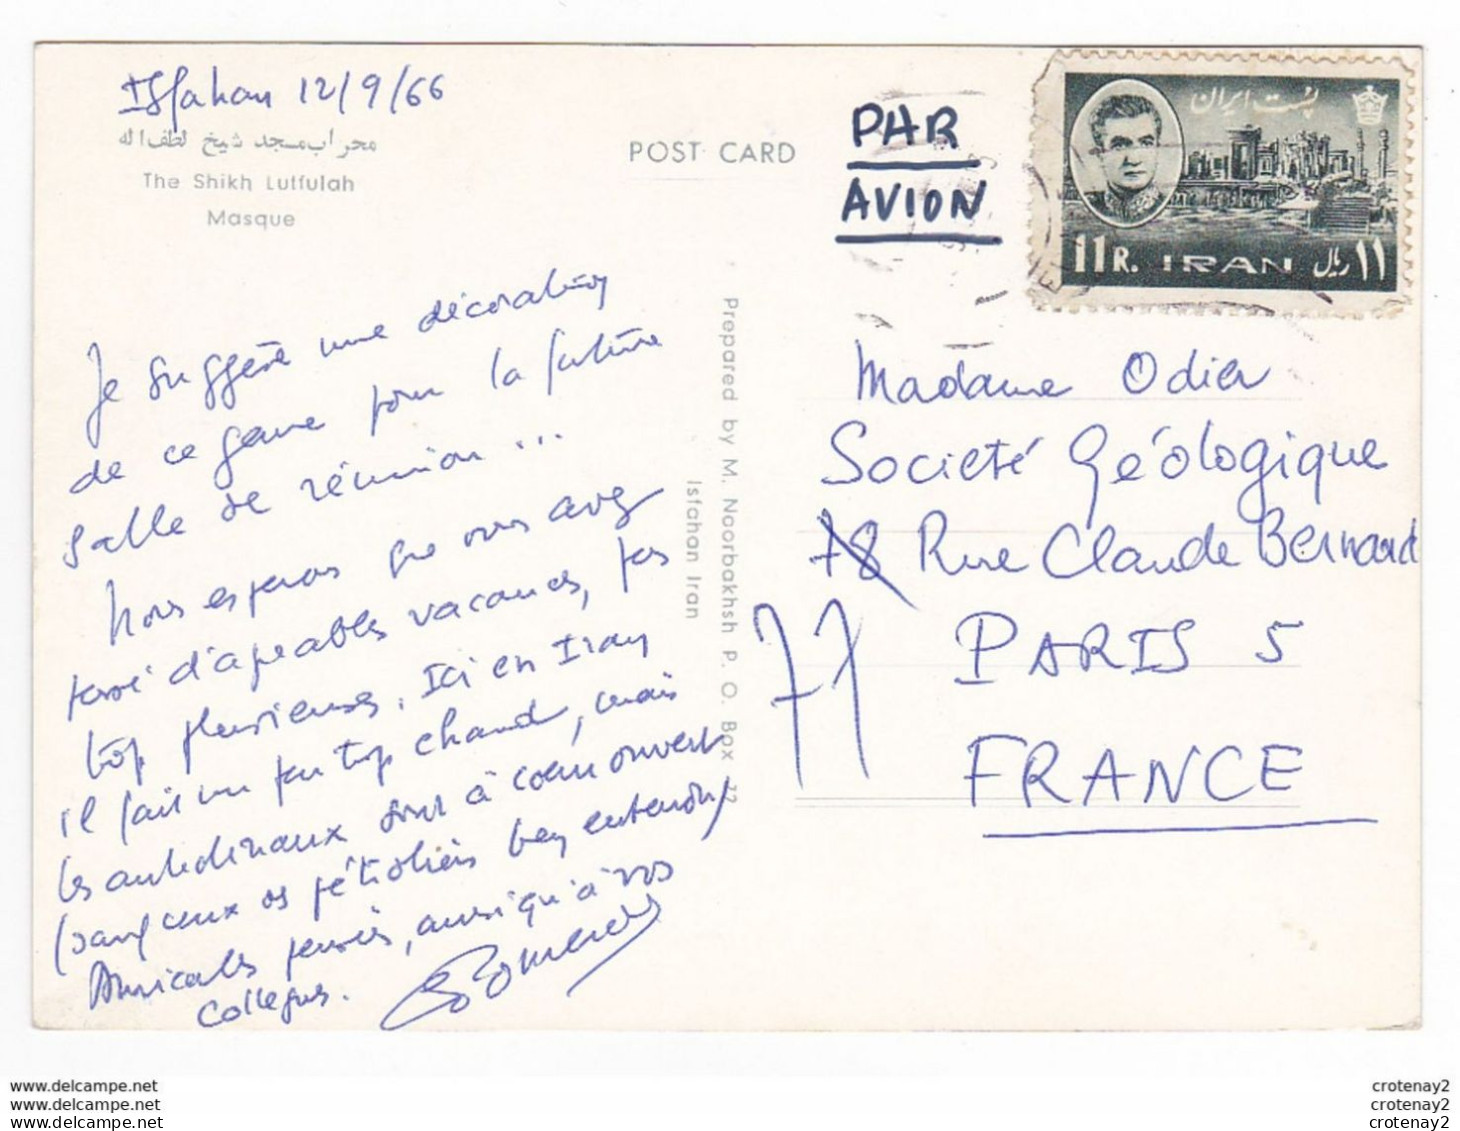 Isfahan 12/9/66
محراب مسجد شیخ لطف اله
The Shikh Lutfulah
Masque
POST CARD
PAR
AVION
پست ایران
11R. IRAN ۱۱ ریال
Je suggère une décoration
de ce genre pour la future
salle de réunion...
Nous espérons que vous avez
passé d'agréables vacances, pas
trop pluvieuses. Ici en Iran
il fait un peu trop chaud, mais
les anticlinaux sont à cœur ouvert
(sauf ceux des pétroliers bien entendu)
Amicales pensées, ainsi qu'à vos
collègues.
Prepared by M. Noorbakhsh P. O. Box 72
Isfahan Iran
Madame Odier
Société Géologique
78 Rue Claude Bernard
77
PARIS 5
FRANCE
www.delcampe.net
www.delcampe.net
www.delcampe.net
crotenay2
crotenay2
crotenay2